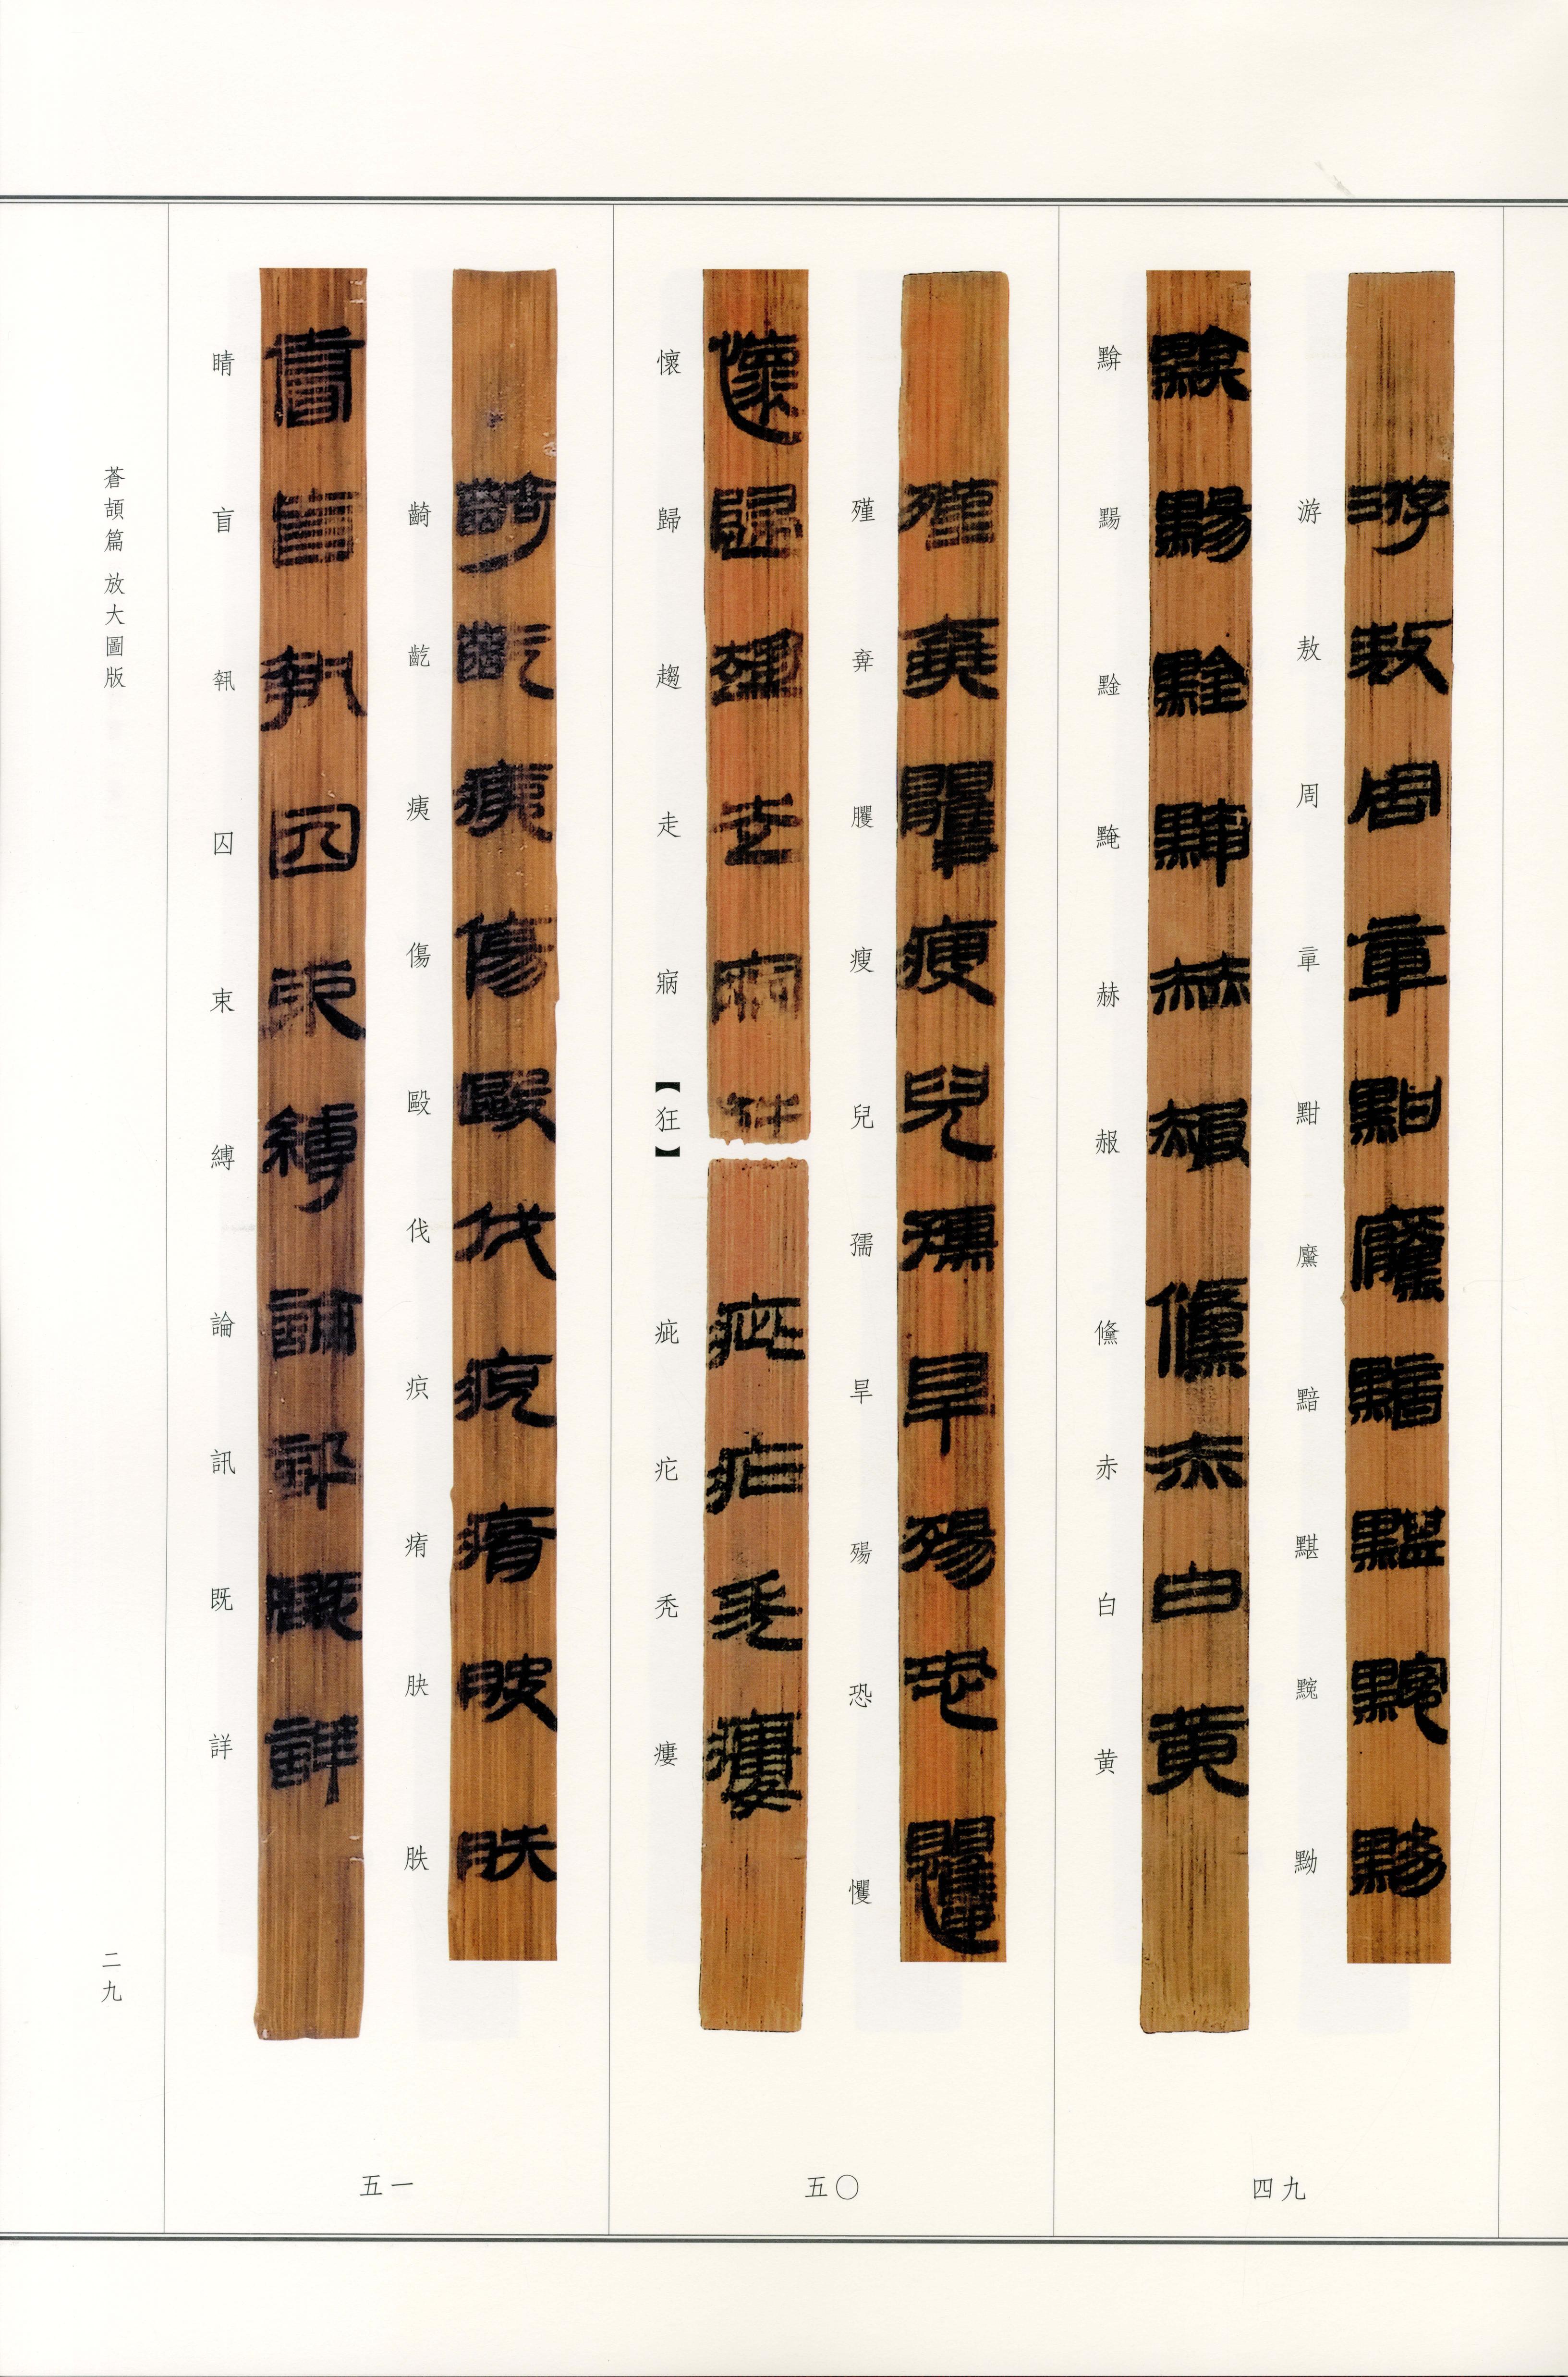 游敖周章黚黶黯黮黦黝
黭䵮黤赫赧儵赤白黃
四九
殣棄臞瘦兒孺旱殤恐懼
懷歸趨走寎【狂】疵疕禿瘻
五〇
齮齕痍傷毆伐痏胅
睛盲執囚束縛論訊既詳
五一
蒼頡篇 放大圖版
二九